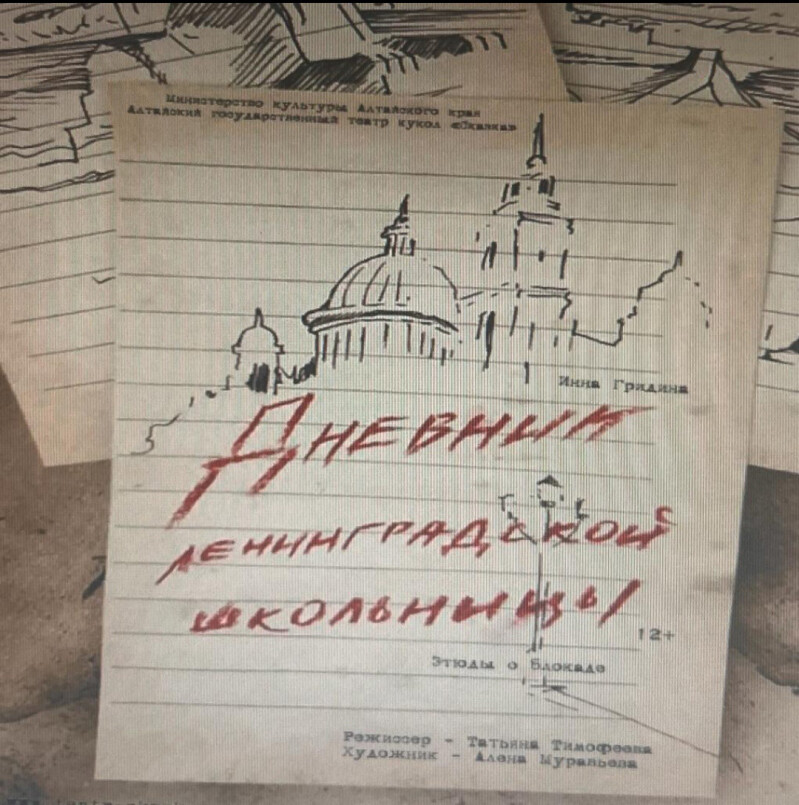 Министерство культуры Алтайского края
Алтайский государственный театр кукол «Сказка»
Инна Гридина
Дневник
ленинградской
школьницы
12+
Этюды о Блокаде
Режиссер - Татьяна Тимофеева
Художник - Алена Муравьева